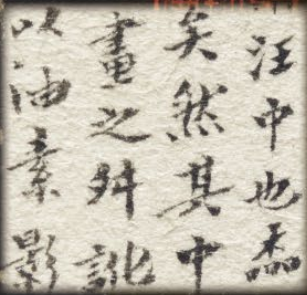 汪中也
矣然其中
畫之舛訛
以油素影